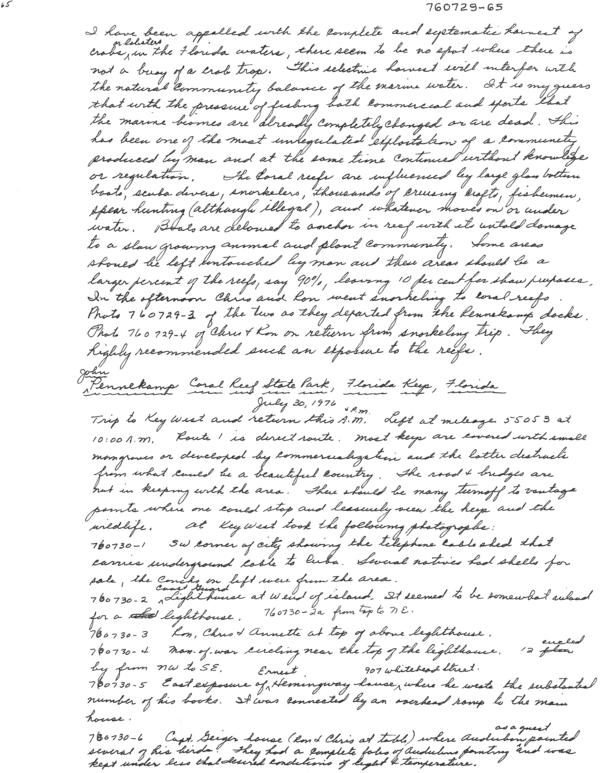 65
760729-65
I have been appalled with the complete and systematic harvest of
or lobsters
crabs, in the Florida waters, there seem to be no spot where there is
not a buoy of a crab trap. This selective harvest will interfer with
the natural community balance of the marine water. It is my guess
that with the pressure of fishing both commercial and sports that
the marine biomes are already completely changed or are dead. This
has been one of the most unregulated exploitation of a community
produced by man and at the same time continued without knowledge
or regulation. The Coral reefs are influenced by large glass bottom
boats, scuba divers, snorkelers, thousands of cruising crafts, fishermen,
spear hunting (although illegal), and whatever moves on or under
water. Boats are allowed to anchor in reef with its untold damage
to a slow growing animal and plant community. Some areas
should be left untouched by man and these areas should be a
larger percent of the reefs, say 90%, leaving 10 per cent for show purposes.
In the afternoon Chris and Ron went snorkeling to coral reefs.
Photo 760729-3 of the two as they departed from the Pennekamp docks.
Photo 760729-4 of Chris & Ron on return from snorkeling trip. They
highly recommended such an exposure to the reefs.
John
Pennekamp Coral Reef State Park, Florida Keys, Florida
July 30, 1976
& P.M.
Trip to Key West and return this A.M. Left at mileage 55053 at
10:00 A.M. Route 1 is direct route. Most keys are covered with small
mangroves or developed by commercialization and the latter distracts
from what could be a beautiful country. The road & bridges are
not in keeping with the area. There should be many turnoff to vantage
points where one could stop and leasurely view the keys and the
wildlife. At Key West took the following photographs:
760730-1 SW corner of city showing the telephone cable shed that
carries underground cable to Cuba. Several natives had shells for
sale, the Conchs on left were from the area.
Coast Guard
760730-2 Lighthouse at W end of island. It seemed to be somewhat inland
for a lighthouse. 760730-2a from top to NE.
760730-3 Ron, Chris & Annette at top of above lighthouse.
760730-4 Man-of-war circling near the top of the lighthouse. 12 circled
by from NW to SE.
Ernest 907 Whitehead Street.
760730-5 East exposure of Hemingway house, where he wrote the substantial
number of his books. It was connected by an overhead ramp to the main
house.
as a guest
760730-6 Capt. Geiger house (Ron & Chris at table) where Audubon painted
several of his birds. They had a complete folio of Audubons painting and was
kept under less that desired conditions of light & temperature.